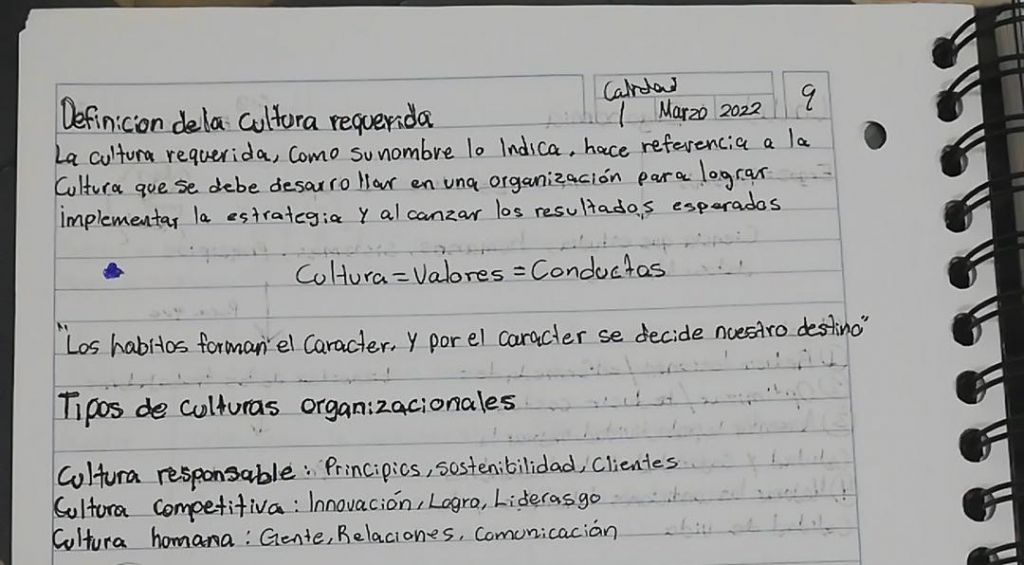 Calidad
1 Marzo 2022
9
Definicion de la Cultura requerida
La cultura requerida, como su nombre lo Indica, hace referencia a la
Cultura que se debe desarrollar en una organización para lograr
implementar la estrategia y alcanzar los resultados esperados
Cultura = Valores = Conductas
"Los habitos forman el Caracter, y por el caracter se decide nuestro destino"
Tipos de culturas organizacionales
Cultura responsable: Principios, sostenibilidad, Clientes
Cultura Competitiva: Innovación, Logro, Liderasgo
Cultura humana: Gente, Relaciones, Comunicación